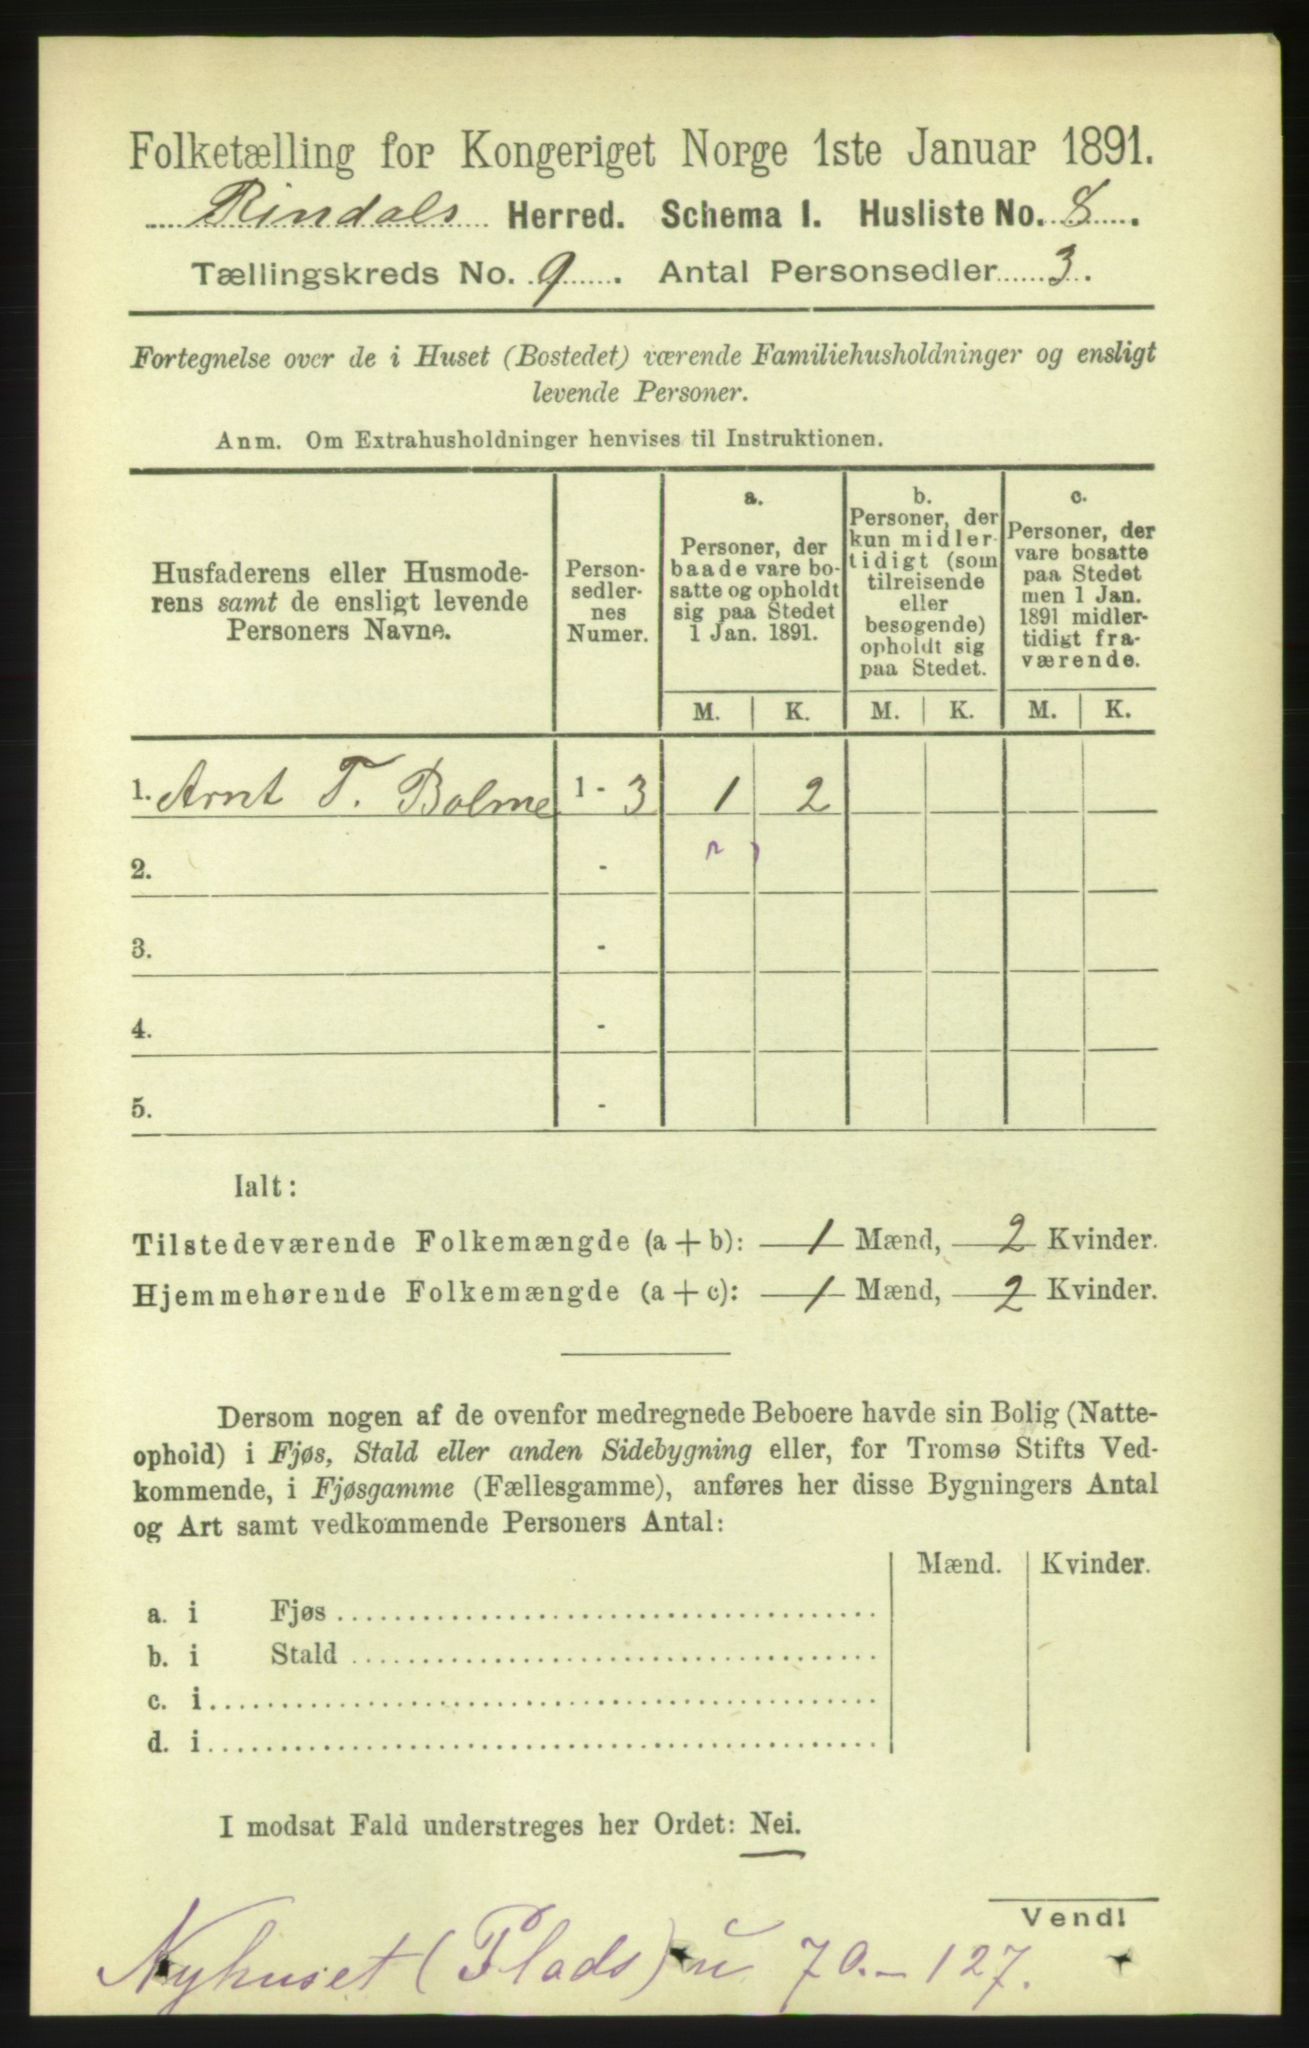 Folketælling for Kongeriget Norge 1ste Januar 1891.
Rindals Herred. Schema I. Husliste No. 8.
Tællingskreds No. 9. Antal Personsedler 3.
Fortegnelse over de i Huset (Bostedet) værende Familiehusholdninger og ensligt
levende Personer.
Anm. Om Extrahusholdninger henvises til Instruktionen.
Husfaderens eller Husmode-
rens samt de ensligt levende
Personers Navne.
Person-
sedler-
nes
Numer.
a.
Personer, der
baade vare bo-
satte og opholdt
sig paa Stedet
1 Jan. 1891.
b.
Personer, der
kun midler-
tidigt (som
tilreisende
eller
besøgende)
opholdt sig
paa Stedet.
c.
Personer, der
vare bosatte
paa Stedet
men 1 Jan.
1891 midler-
tidigt fra-
værende.
M. K. M. K. M. K.
1. Arnt T. Bolme 1 - 3 1 2
2. -
3. -
4. -
5. -
Ialt:
Tilstedeværende Folkemængde (a + b): 1 Mænd, 2 Kvinder.
Hjemmehørende Folkemængde (a + c): 1 Mænd, 2 Kvinder.
Dersom nogen af de ovenfor medregnede Beboere havde sin Bolig (Natte-
ophold) i Fjøs, Stald eller anden Sidebygning eller, for Tromsø Stifts Ved-
kommende, i Fjøsgamme (Fællesgamme), anføres her disse Bygningers Antal
og Art samt vedkommende Personers Antal:
Mænd. Kvinder.
a. i Fjøs
b. i Stald
c. i
d. i
I modsat Fald understreges her Ordet: Nei.
Vend!
Nyhuset (Plads) u 70.-127.